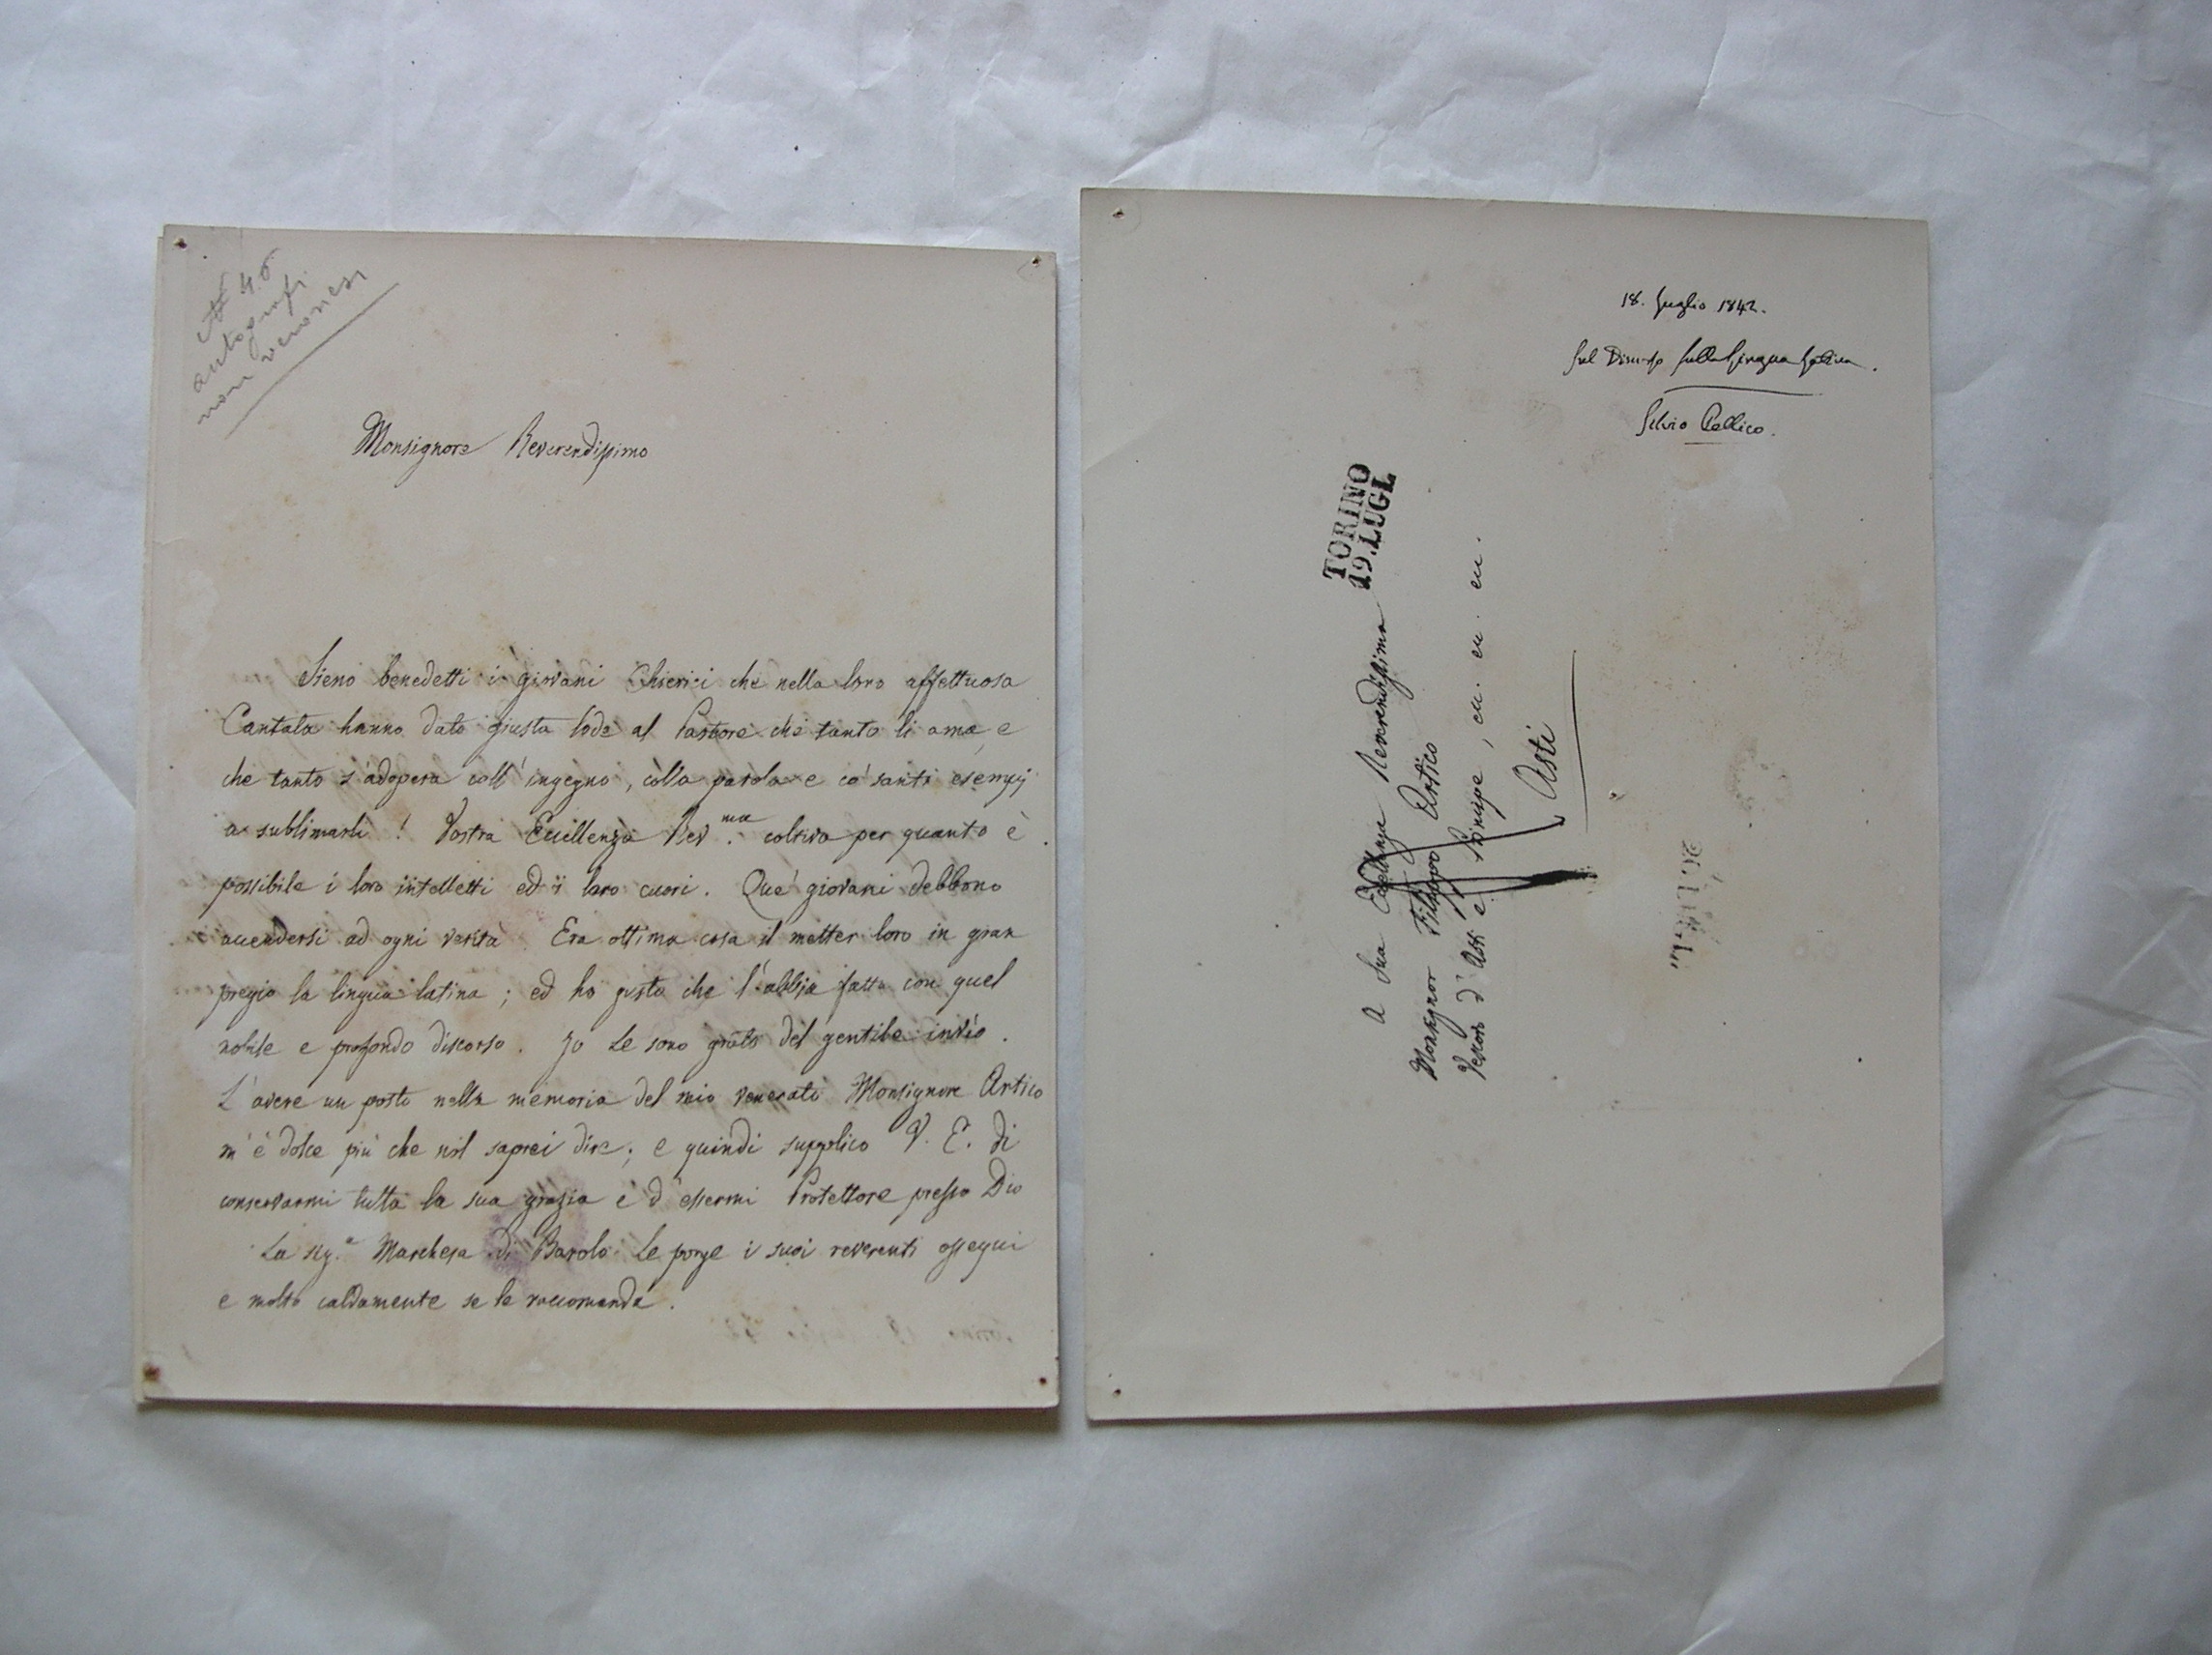 N 40
autografi
non veronesi
Monsignore Reverendissimo
Sieno benedetti i giovani Chierici che nella loro affettuosa
Cantata hanno dato giusta lode al Pastore che tanto li ama, e
che tanto s'adopera coll'ingegno, colla parola e co' santi esempj
a sublimarli! Vostra Eccellenza Rev.ma coltiva per quanto è
possibile i loro intelletti ed i loro cuori. Que' giovani debbono
accendersi ad ogni verità. Era ottima cosa il metter loro in gran
pregio la lingua latina; ed ho gusto che l'abbia fatto con quel
nobile e profondo discorso. Io Le sono grato del gentile invio.
L'avere un posto nella memoria del mio venerato Monsignore Artico
m'è dolce più che nol saprei dire; e quindi supplico V. E. di
conservarmi tutta la sua grazia e d'essermi Protettore presso Dio
La sig.a Marchesa di Barolo Le porge i suoi reverenti ossequi
e molto caldamente se le raccomanda.
18. Luglio 1842.
Sul Discorso sulla Lingua Latina.
Silvio Pellico.
TORINO
19.LUGL
A Sua Eccellenza Reverendissima
Monsignor Filippo Artico
Vescovo d'Asti e Principe, ec. ec. ec.
Asti